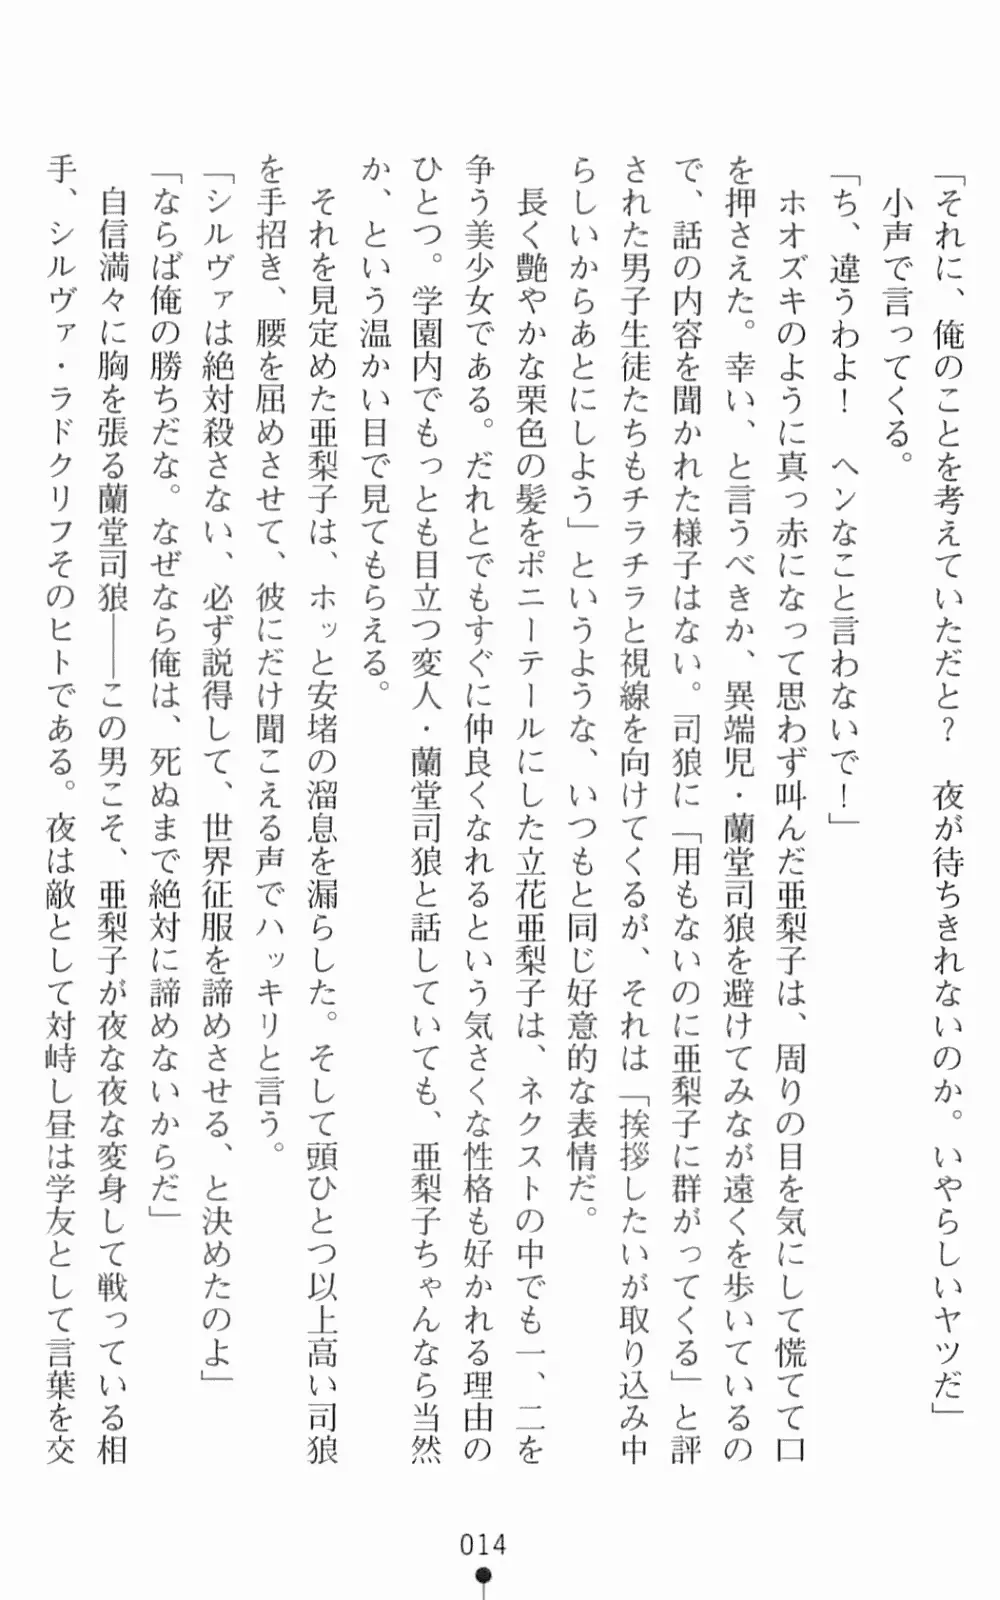 「それに、俺のことを考えていただと？　夜が待ちきれないのか。いやらしいヤツだ」
小声で言ってくる。
「ち、違うわよ！　ヘンなこと言わないで！」
ホオズキのように真っ赤になって思わず叫んだ亜梨子は、周りの目を気にして慌てて口
を押さえた。幸い、と言うべきか、異端児・蘭堂司狼を避けてみなが遠くを歩いているの
で、話の内容を聞かれた様子はない。司狼に「用もないのに亜梨子に群がってくる」と評
された男子生徒たちもチラチラと視線を向けてくるが、それは「挨拶したいが取り込み中
らしいからあとにしよう」というような、いつもと同じ好意的な表情だ。
長く艶やかな栗色の髪をポニーテールにした立花亜梨子は、ネクストの中でも一、二を
争う美少女である。だれとでもすぐに仲良くなれるという気さくな性格も好かれる理由の
ひとつ。学園内でもっとも目立つ変人・蘭堂司狼と話していても、亜梨子ちゃんなら当然
か、という温かい目で見てもらえる。
それを見定めた亜梨子は、ホッと安堵の溜息を漏らした。そして頭ひとつ以上高い司狼
を手招き、腰を屈めさせて、彼にだけ聞こえる声でハッキリと言う。
「シルヴァは絶対殺さない、必ず説得して、世界征服を諦めさせる、と決めたのよ」
「ならば俺の勝ちだな。なぜなら俺は、死ぬまで絶対に諦めないからだ」
自信満々に胸を張る蘭堂司狼――この男こそ、亜梨子が夜な夜な変身して戦っている相
手、シルヴァ・ラドクリフそのヒトである。夜は敵として対峙し昼は学友として言葉を交
014